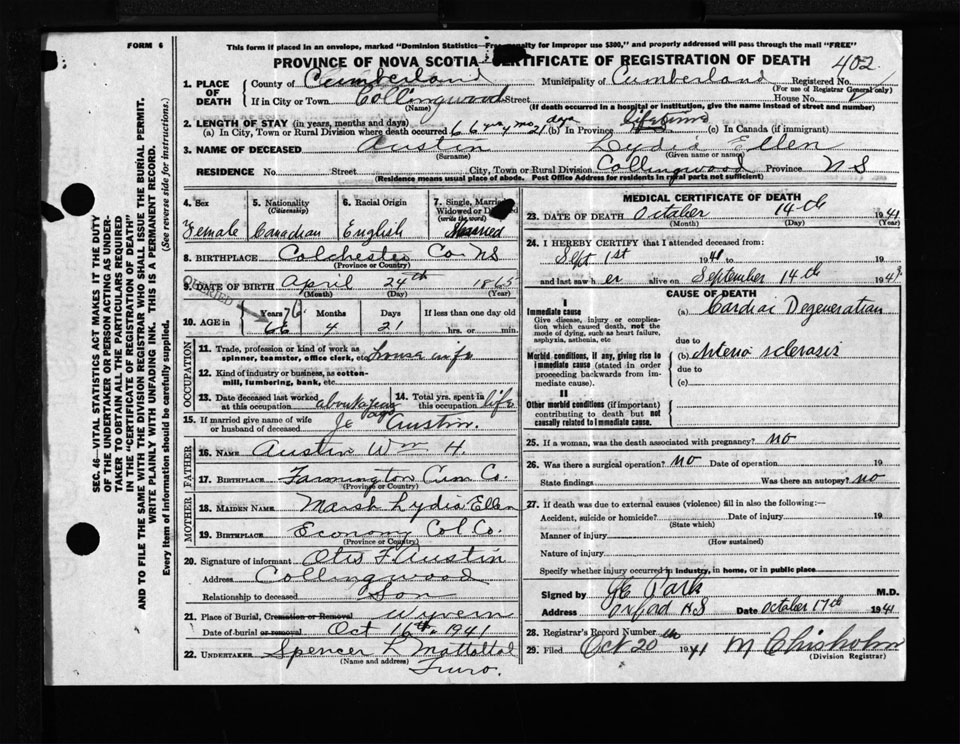 FORM 6
This form if placed in an envelope, marked "Dominion Statistics—Free penalty for improper use $300," and properly addressed will pass through the mail "FREE"
PROVINCE OF NOVA SCOTIA CERTIFICATE OF REGISTRATION OF DEATH 402
1. PLACE OF DEATH
County of Cumberland Municipality of Cumberland Registered No.
(For use of Registrar General only)
If in City or Town Collingwood Street House No.
(Name) (If death occurred in a hospital or institution, give the name instead of street and number)
2. LENGTH OF STAY (in years, months and days)
(a) In City, Town or Rural Division where death occurred 66 yrs 4 mo 21 days (b) In Province lifetime (c) In Canada (if immigrant)
3. NAME OF DECEASED Austin Lydia Ellen
(Surname) (Given name or names)
RESIDENCE No. Street City, Town or Rural Division Collingwood Province N S
(Residence means usual place of abode. Post Office Address for residents in rural parts not sufficient)
4. Sex Female
5. Nationality (Citizenship) Canadian
6. Racial Origin English
7. Single, Married, Widowed or (write the word) Married
8. BIRTHPLACE Colchester Co. NS
(Province or Country)
QUERIED
9. DATE OF BIRTH April 24th 1865
(Month) (Day) (Year)
10. AGE in Years 76 66 Months 4 Days 21 If less than one day old hrs. or min.
OCCUPATION
11. Trade, profession or kind of work as spinner, teamster, office clerk, etc. house wife
12. Kind of industry or business, as cotton-mill, lumbering, bank, etc.
13. Date deceased last worked at this occupation about a year ago
14. Total yrs. spent in this occupation life
15. If married give name of wife or husband of deceased Austin.
FATHER
16. NAME Austin Wm H.
17. BIRTHPLACE Farmington Cum Co.
(Province or Country)
MOTHER
18. MAIDEN NAME Marsh Lydia Ellen
19. BIRTHPLACE Economy Col Co.
(Province or Country)
20. Signature of informant Otis F Austin
Address Collingwood
Relationship to deceased Son
21. Place of Burial, Cremation or Removal Wyvern
Date of burial or removal Oct 16th, 1941
22. UNDERTAKER Spencer L Mattatal
(Name and address) Truro.
MEDICAL CERTIFICATE OF DEATH
23. DATE OF DEATH October 14th 1941
(Month) (Day) (Year)
24. I HEREBY CERTIFY that I attended deceased from:
Sept 1st 1941 to 19
and last saw her alive on September 14th 194
CAUSE OF DEATH
I
Immediate cause (a) Cardiac Degeneration
Give disease, injury or complication which caused death, not the mode of dying, such as heart failure, asphyxia, asthenia, etc
due to
Morbid conditions, if any, giving rise to immediate cause (stated in order proceeding backwards from immediate cause). (b) Arterio sclerosis
due to
(c)
II
Other morbid conditions (if important) contributing to death but not causally related to immediate cause.
25. If a woman, was the death associated with pregnancy? no
26. Was there a surgical operation? no Date of operation 19
State findings Was there an autopsy? no
27. If death was due to external causes (violence) fill in also the following:—
Accident, suicide or homicide? Date of injury 19
(State which)
Manner of injury
(How sustained)
Nature of injury
Specify whether injury occurred in industry, in home, or in public place
Signed by Park M.D.
Address Oxford NS Date October 17th 1941
28. Registrar's Record Number
29. Filed Oct 20 1941 M Chisholm
(Division Registrar)
SEC. 46—VITAL STATISTICS ACT MAKES IT THE DUTY
OF THE UNDERTAKER OR PERSON ACTING AS UNDER-
TAKER TO OBTAIN ALL THE PARTICULARS REQUIRED
IN THE "CERTIFICATE OF REGISTRATION OF DEATH"
AND TO FILE THE SAME WITH THE DIVISION REGISTRAR WHO SHALL ISSUE THE BURIAL PERMIT.
WRITE PLAINLY WITH UNFADING INK. THIS IS A PERMANENT RECORD.
Every item of information should be carefully supplied. (See reverse side for instructions.)